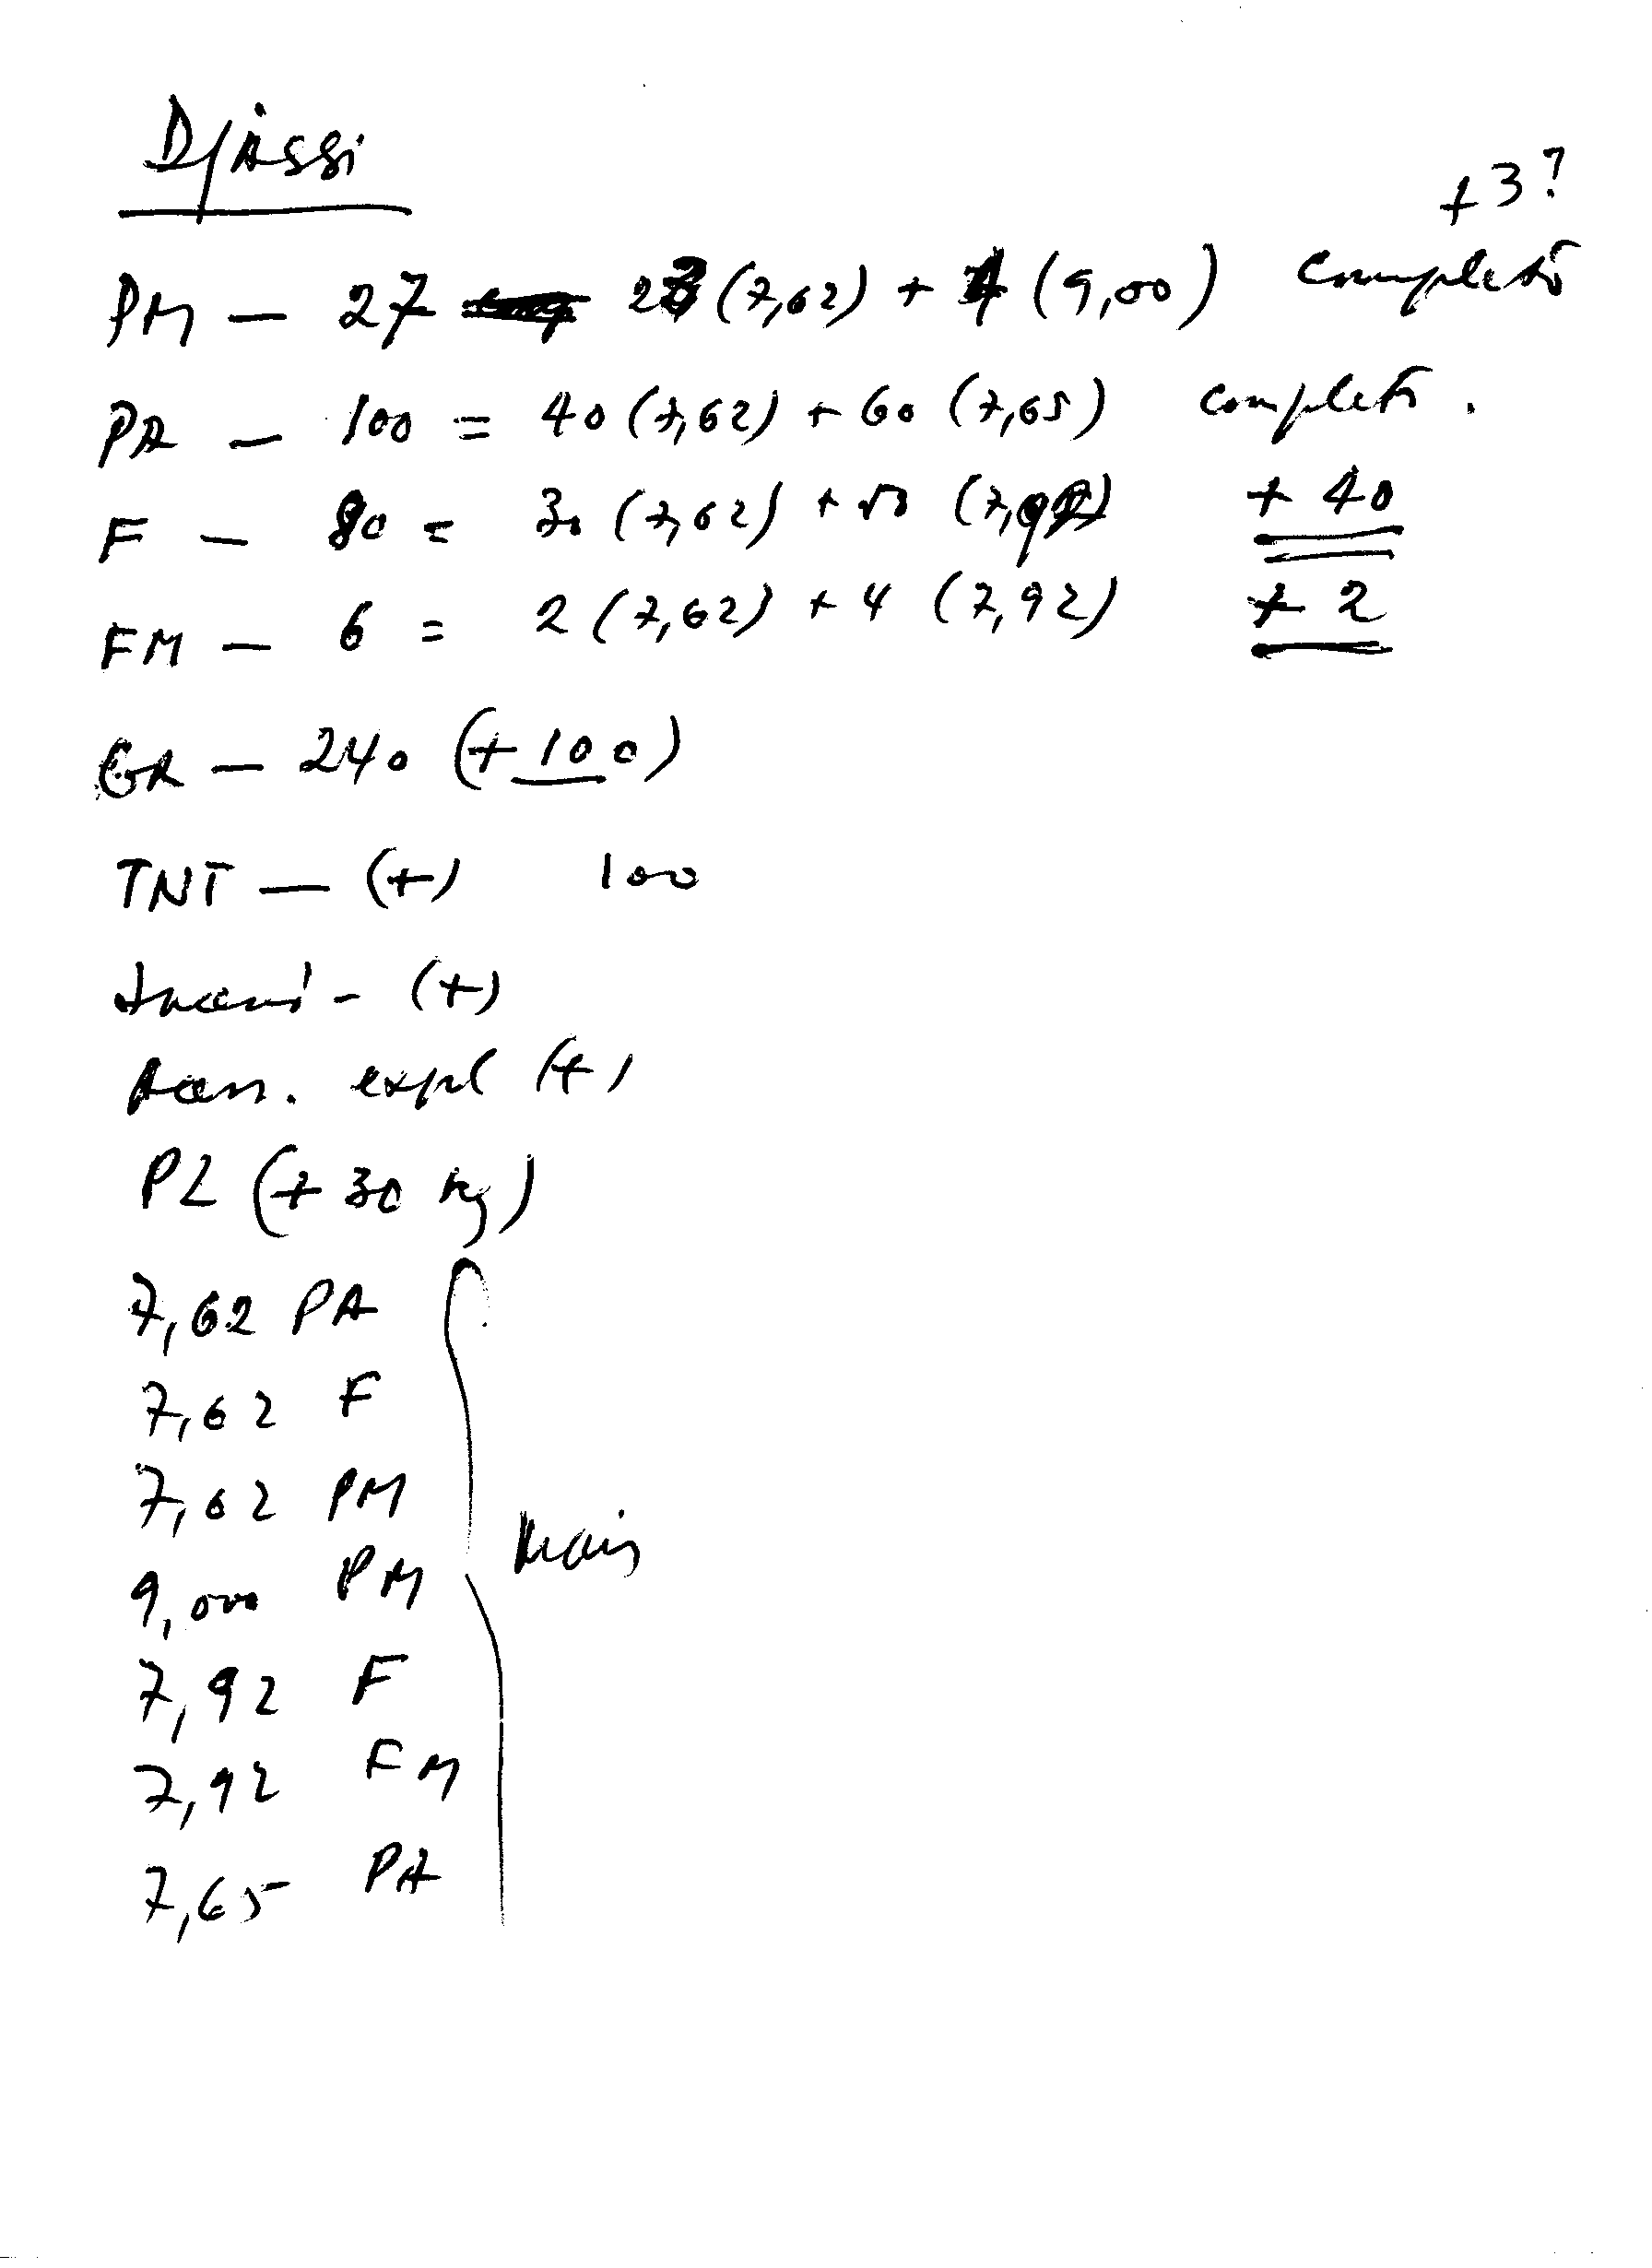 Djassi
+ 3?
PM — 27 23 (7,62) + 4 (9,00) completo
PA — 100 = 40 (7,62) + 60 (7,65) completo.
F — 80 = 30 (7,62) + 50 (7,92) + 40
FM — 6 = 2 (7,62) + 4 (7,92) + 2
GR — 240 (+ 100)
TNT — (+) 100
- (+)
expl (+)
PL (+ 30 kg)
7,62 PA
7,62 F
7,62 PM
9,000 PM
Mais
7,92 F
7,92 FM
7,65 PA